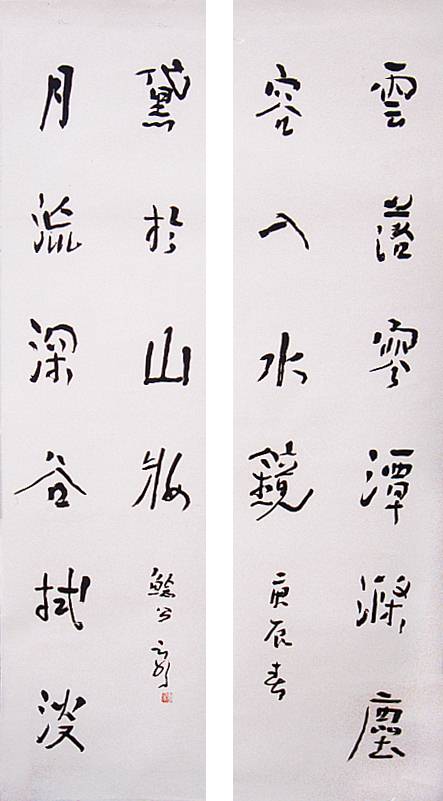 雲落潭滌塵
容入水鏡
庚辰春
月流深谷拭淡
黛於山妝